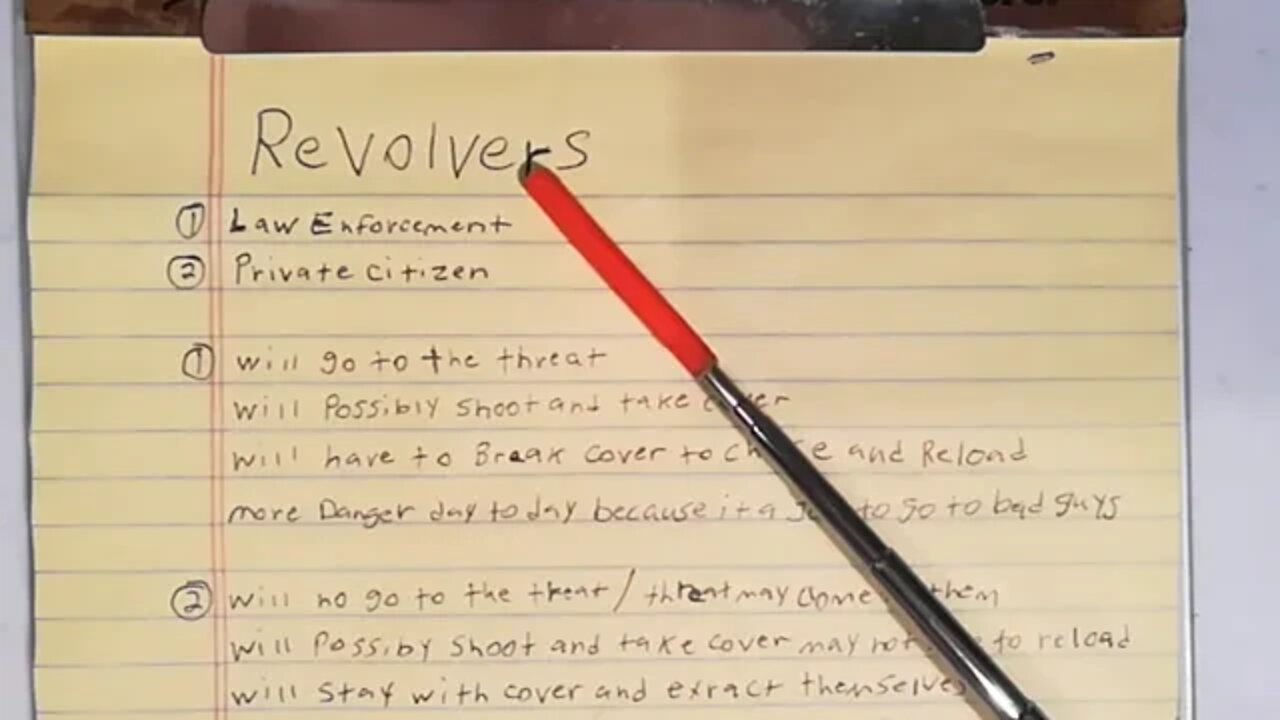 Revolvers
① Law Enforcement
② Private citizen
① will go to the threat
will Possibly shoot and take cover
will have to Break cover to and Reload
more Danger day to day because it a to go to bad guys
② will no go to the threat / threat may come them
will Possiby shoot and take cover may not to reload
will stay with cover and exract themselves